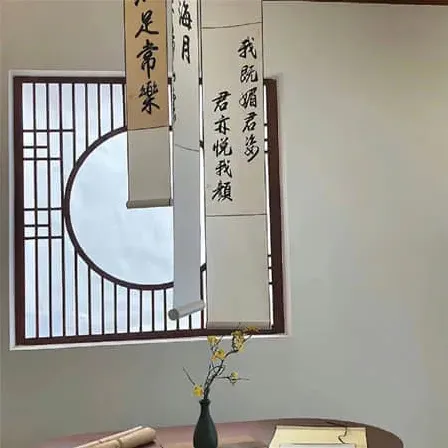 我既媚君姿
君亦悦我顏
海月
足常樂